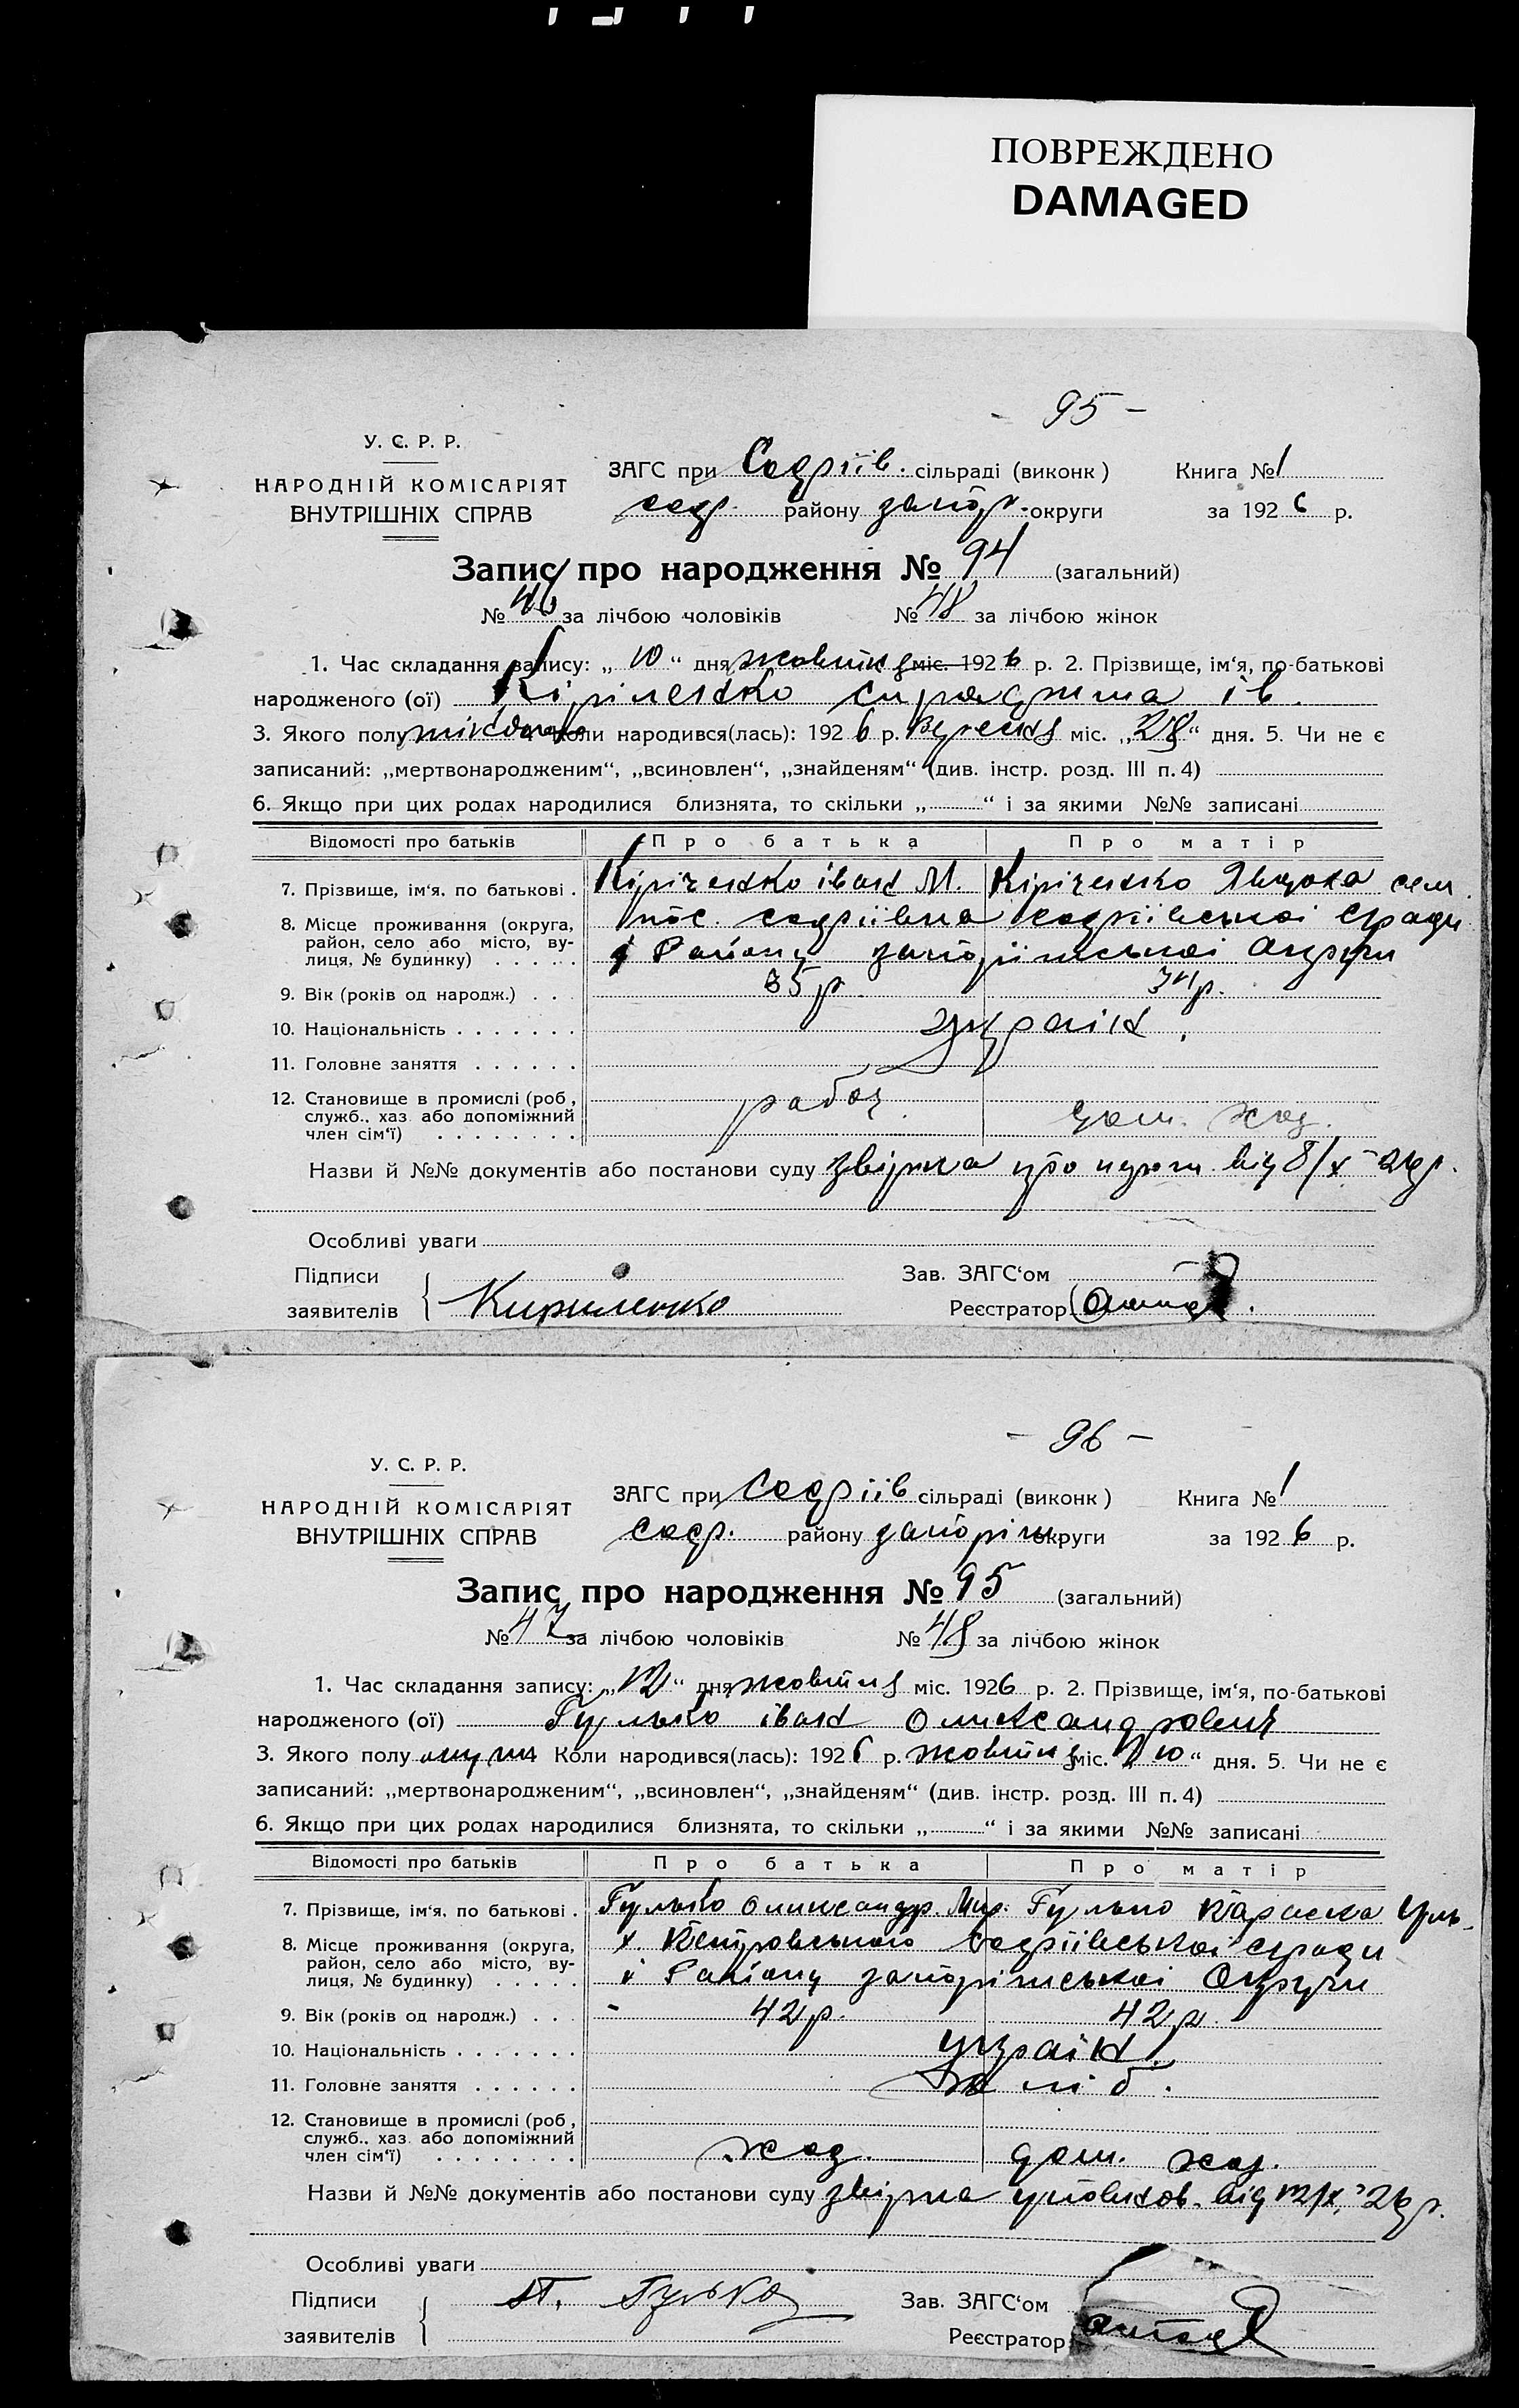 ПОВРЕЖДЕНО
DAMAGED
- 95 -
У. С. Р. Р.
НАРОДНІЙ КОМІСАРІЯТ
ВНУТРІШНІХ СПРАВ
ЗАГС при сільраді (виконк) Книга № 1
району запор. округи за 1926 р.
Запис про народження № 94 (загальний)
№ 46 за лічбою чоловіків № 48 за лічбою жінок
1. Час складання запису: „ 10 “ дня жовтня міс. 1926 р. 2. Прізвище, ім‘я, по-батькові
народженого (ої) ів.
3. Якого полу Коли народився(лась): 1926 р. Вересня міс. „28“ дня. 5. Чи не є
записаний: „мертвонародженим“, „всиновлен“, „знайденям“ (див. інстр. розд. III п. 4)
6. Якщо при цих родах народилися близнята, то скільки „ “ і за якими №№ записані
Відомості про батьків Про батька Про матір
7. Прізвище, ім‘я, по батькові . Кіріченко іван М. Кіріченко
8. Місце проживання (округа, район, село або місто, вулиця, № будинку) пос. сради
Району Округи
9. Вік (років од народж.) . . . 35 р. 34 р.
10. Національність . . . . . . . україн.
11. Головне заняття . . . . . .
12. Становище в промислі (роб, служб., хаз. або допоміжний член сім‘ї) . . . . . . . . робоч. дом. хоз.
Назви й №№ документів або постанови суду про від 8/х 26 р.
Особливі уваги
Підписи Зав. ЗАГС‘ом
заявителів Кириленко Реєстратор
- 96 -
У. С. Р. Р.
НАРОДНІЙ КОМІСАРІЯТ
ВНУТРІШНІХ СПРАВ
ЗАГС при сільраді (виконк) Книга № 1
району запоріж. округи за 1926 р.
Запис про народження № 95 (загальний)
№ 47 за лічбою чоловіків № 48 за лічбою жінок
1. Час складання запису: „ 12 “ дня жовтня міс. 1926 р. 2. Прізвище, ім‘я, по-батькові
народженого (ої) Гулько іван Олександрович
3. Якого полу Коли народився(лась): 1926 р. жовтня міс. „ 10 “ дня. 5. Чи не є
записаний: „мертвонародженим“, „всиновлен“, „знайденям“ (див. інстр. розд. III п. 4)
6. Якщо при цих родах народилися близнята, то скільки „ “ і за якими №№ записані
Відомості про батьків Про батька Про матір
7. Прізвище, ім‘я, по батькові . Гулько Олександр. Гулько
8. Місце проживання (округа, район, село або місто, вулиця, № будинку) х. Петровського сради
Району запоріжської Округи
9. Вік (років од народж.) . . . 42 р. 42 р.
10. Національність . . . . . . . україн.
11. Головне заняття . . . . . . хліб.
12. Становище в промислі (роб, служб., хаз. або допоміжний член сім‘ї) . . . . . . . . хоз. дом. хоз.
Назви й №№ документів або постанови суду від 12/х 26 р.
Особливі уваги
Підписи Гулько Зав. ЗАГС‘ом
заявителів Реєстратор